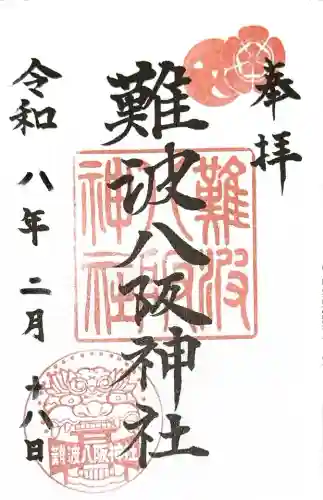 奉拝
難波八阪神社
令和八年二月十八日
難波八阪神社
難波八阪神社